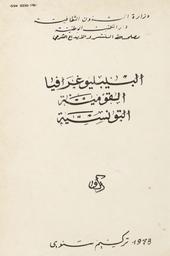 ISSN 0330-1761
وزارة الشؤون الثقافية
دار الكتب الوطنية
مصلحة النشر والإيداع الشرعي
البيبليوغرافيا
القومية
التونسية
1978 ترقيم سنوي